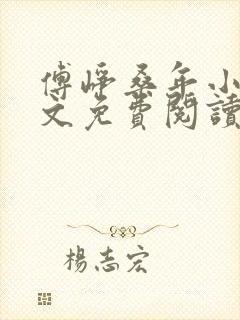 傅崢桑年小
文免費閱讀
楊志宏